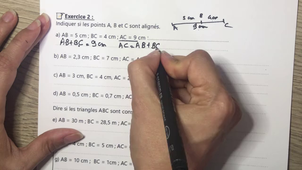 Exercice 2 :
Indiquer si les points A, B et C sont alignés.
5 cm B 4 cm
A 9 cm C
a) AB = 5 cm ; BC = 4 cm ; AC = 9 cm
AB+BC = 9 cm AC = AB+BC
b) AB = 2,3 cm ; BC = 7 cm ; AC
c) AB = 3 cm, BC = 4 cm ; AC
d) AB = 0,5 cm ; BC = 0,7 cm ; AC
Dire si les triangles ABC sont
e) AB = 30 m ; BC = 28,5 m ; AC
g) AB = 10 cm ; BC = 1 cm ; AC